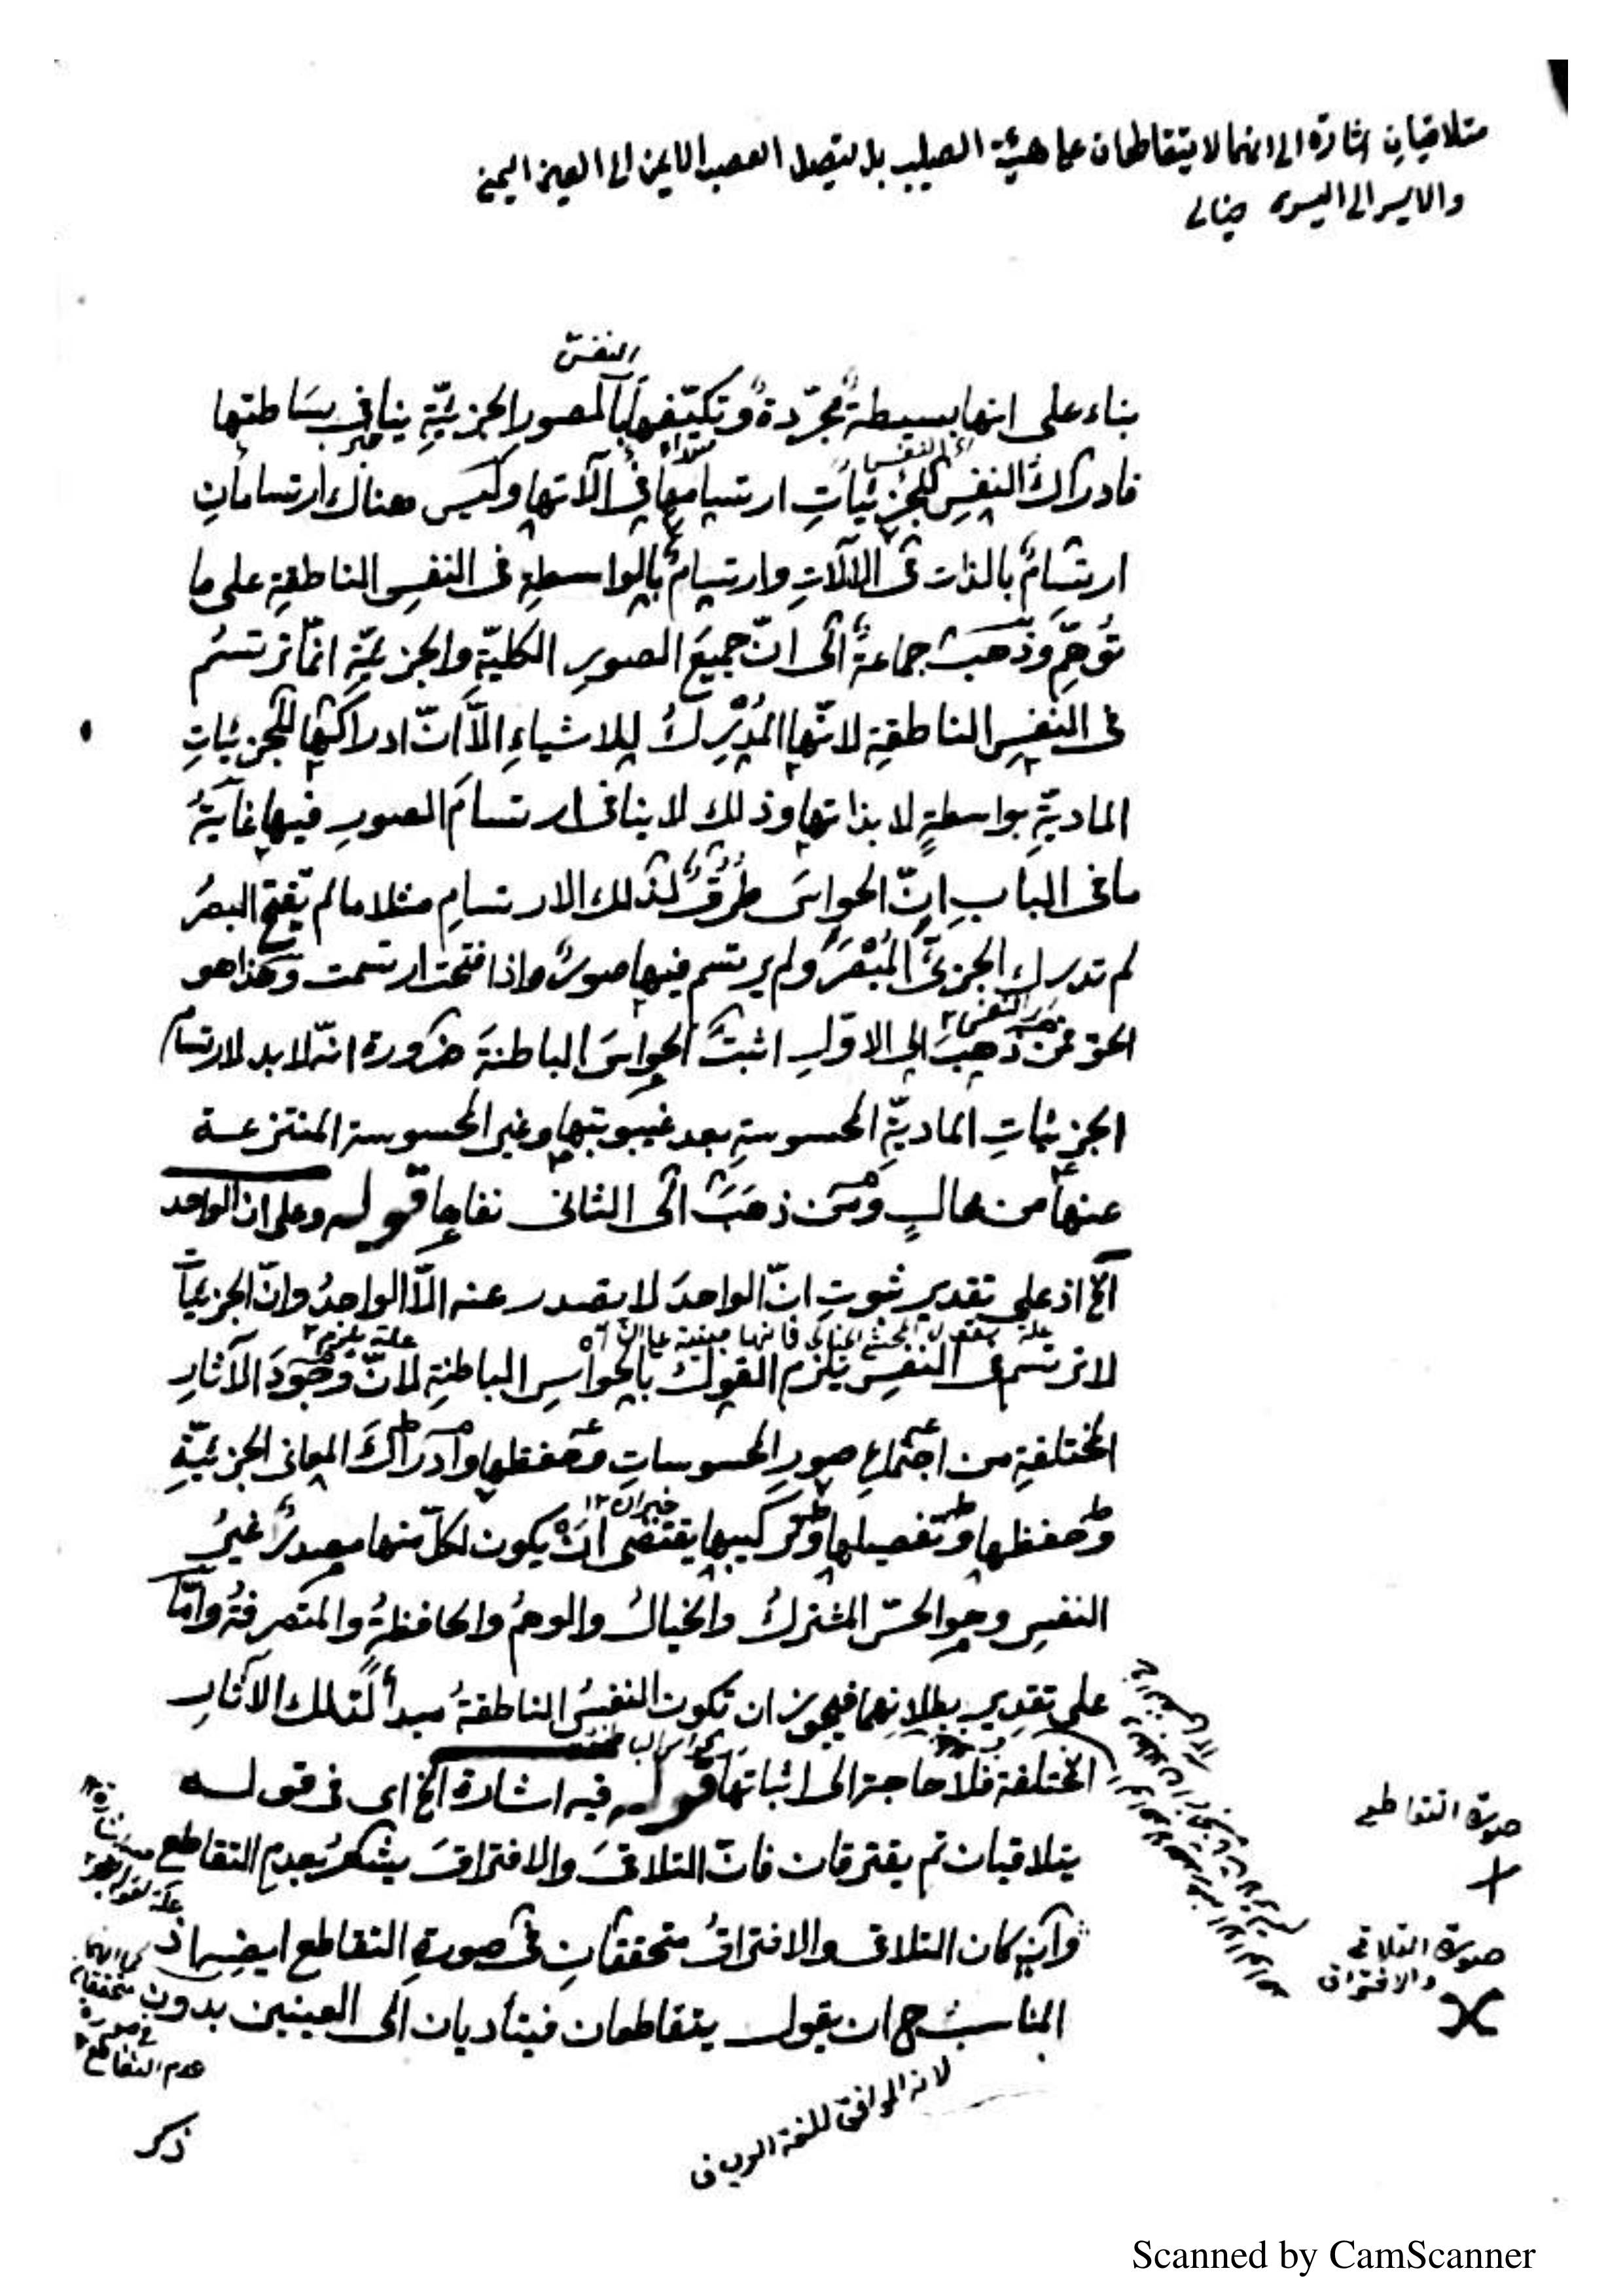 متلاقيان اشارة الى انهما لا يتقاطعان على هيئة الصليب بل يتصل العصب الايمن الى العين اليمنى
والايسر الى اليسرى خيالى
النفس
بناء على انها بسيطةٌ مجرّدةٌ وتكيّفها بالصورِ الجزئيّةِ ينافى بسَاطتها
فادراكُ النفسِ للجزئيّاتِ ارتسامها فى آلاتها وليس هناك ارتسامانِ
ارتسامٌ بالذات فى الآلاتِ وارتسامٌ بالواسطةِ فى النفسِ الناطقةِ على ما
تُوُهِّمَ وذهبَت جماعةٌ الى انّ جميعَ الصورِ الكليّةِ والجزئيّةِ انّما ترتسُم
فى النفسِ الناطقةِ لانّها المُدْرِكُ للاشياءِ الاّ انّ ادراكَها للجزئيّاتِ
الماديّةِ بواسطةٍ لا بذاتها وذلك لا ينافى ارتسامَ الصورِ فيها غايةُ
ما فى البابِ انّ الحواسَ طُرُقٌ لذلك الارتسامِ مثلا ما لم يُفتحِ البصرُ
لم تدركِ الجزئىَّ المُبْصَرَ ولم يرتسم فيها صورةٌ واذا فتحت ارتسمت وهذا هو
الحق فمن ذهبَ الى الاوّلِ اثبتَ الحواسَ الباطنةَ ضرورة انّه لا بد لارتسام
الجزئياتِ الماديّةِ المحسوسةِ بعد غيبوبتها وغير المحسوسة المنتزعة
عنها من محالٍ ومن ذهبَ الى الثانى نفاها قوله وعلى ان الواحد
الخ اذ على تقديرِ ثبوتِ انّ الواحدَ لا يصدر عنه الاّ الواحدُ وانّ الجزئيّاتِ
لا ترتسم فى النفسِ يلزم القولُ بالحواسِ الباطنةِ لانّ وجودَ الآثارِ
المختلفةِ من اجتماعِ صورِ المحسوساتِ وحفظها وادراكَ المعانى الجزئيّةِ
وحفظها وتفصيلها وتركيبها يقتضى انْ يكون لكلّ منها مصدرٌ غيرُ
النفسِ وهو الحسّ المشتركُ والخيالُ والوهمُ والحافظةُ والمتصرفةُ وامّا
على تقديرِ بطلانِهما فيجوز ان تكون النفسُ الناطقةُ مبدأً لتلك الآثارِ
المختلفة فلا حاجة الى اثباتها قوله فيه اشارة الخ اى فى قوله
يتلاقيان ثم يفترقان فانّ التلاقىَ والافتراقَ يشعرُ بعدمِ التقاطع
وان كان التلاقى والافتراقُ متحققانِ فى صورةِ التقاطع ايضا اذ
المناسبُ ح ان يقول يتقاطعان فيتأديان الى العينين بدون
ذكر
صورة التقاطع
صورة التلاقى
والافتراق
كما انهما
متحققان
فى صورة
عدم التقاطع
Scanned by CamScanner